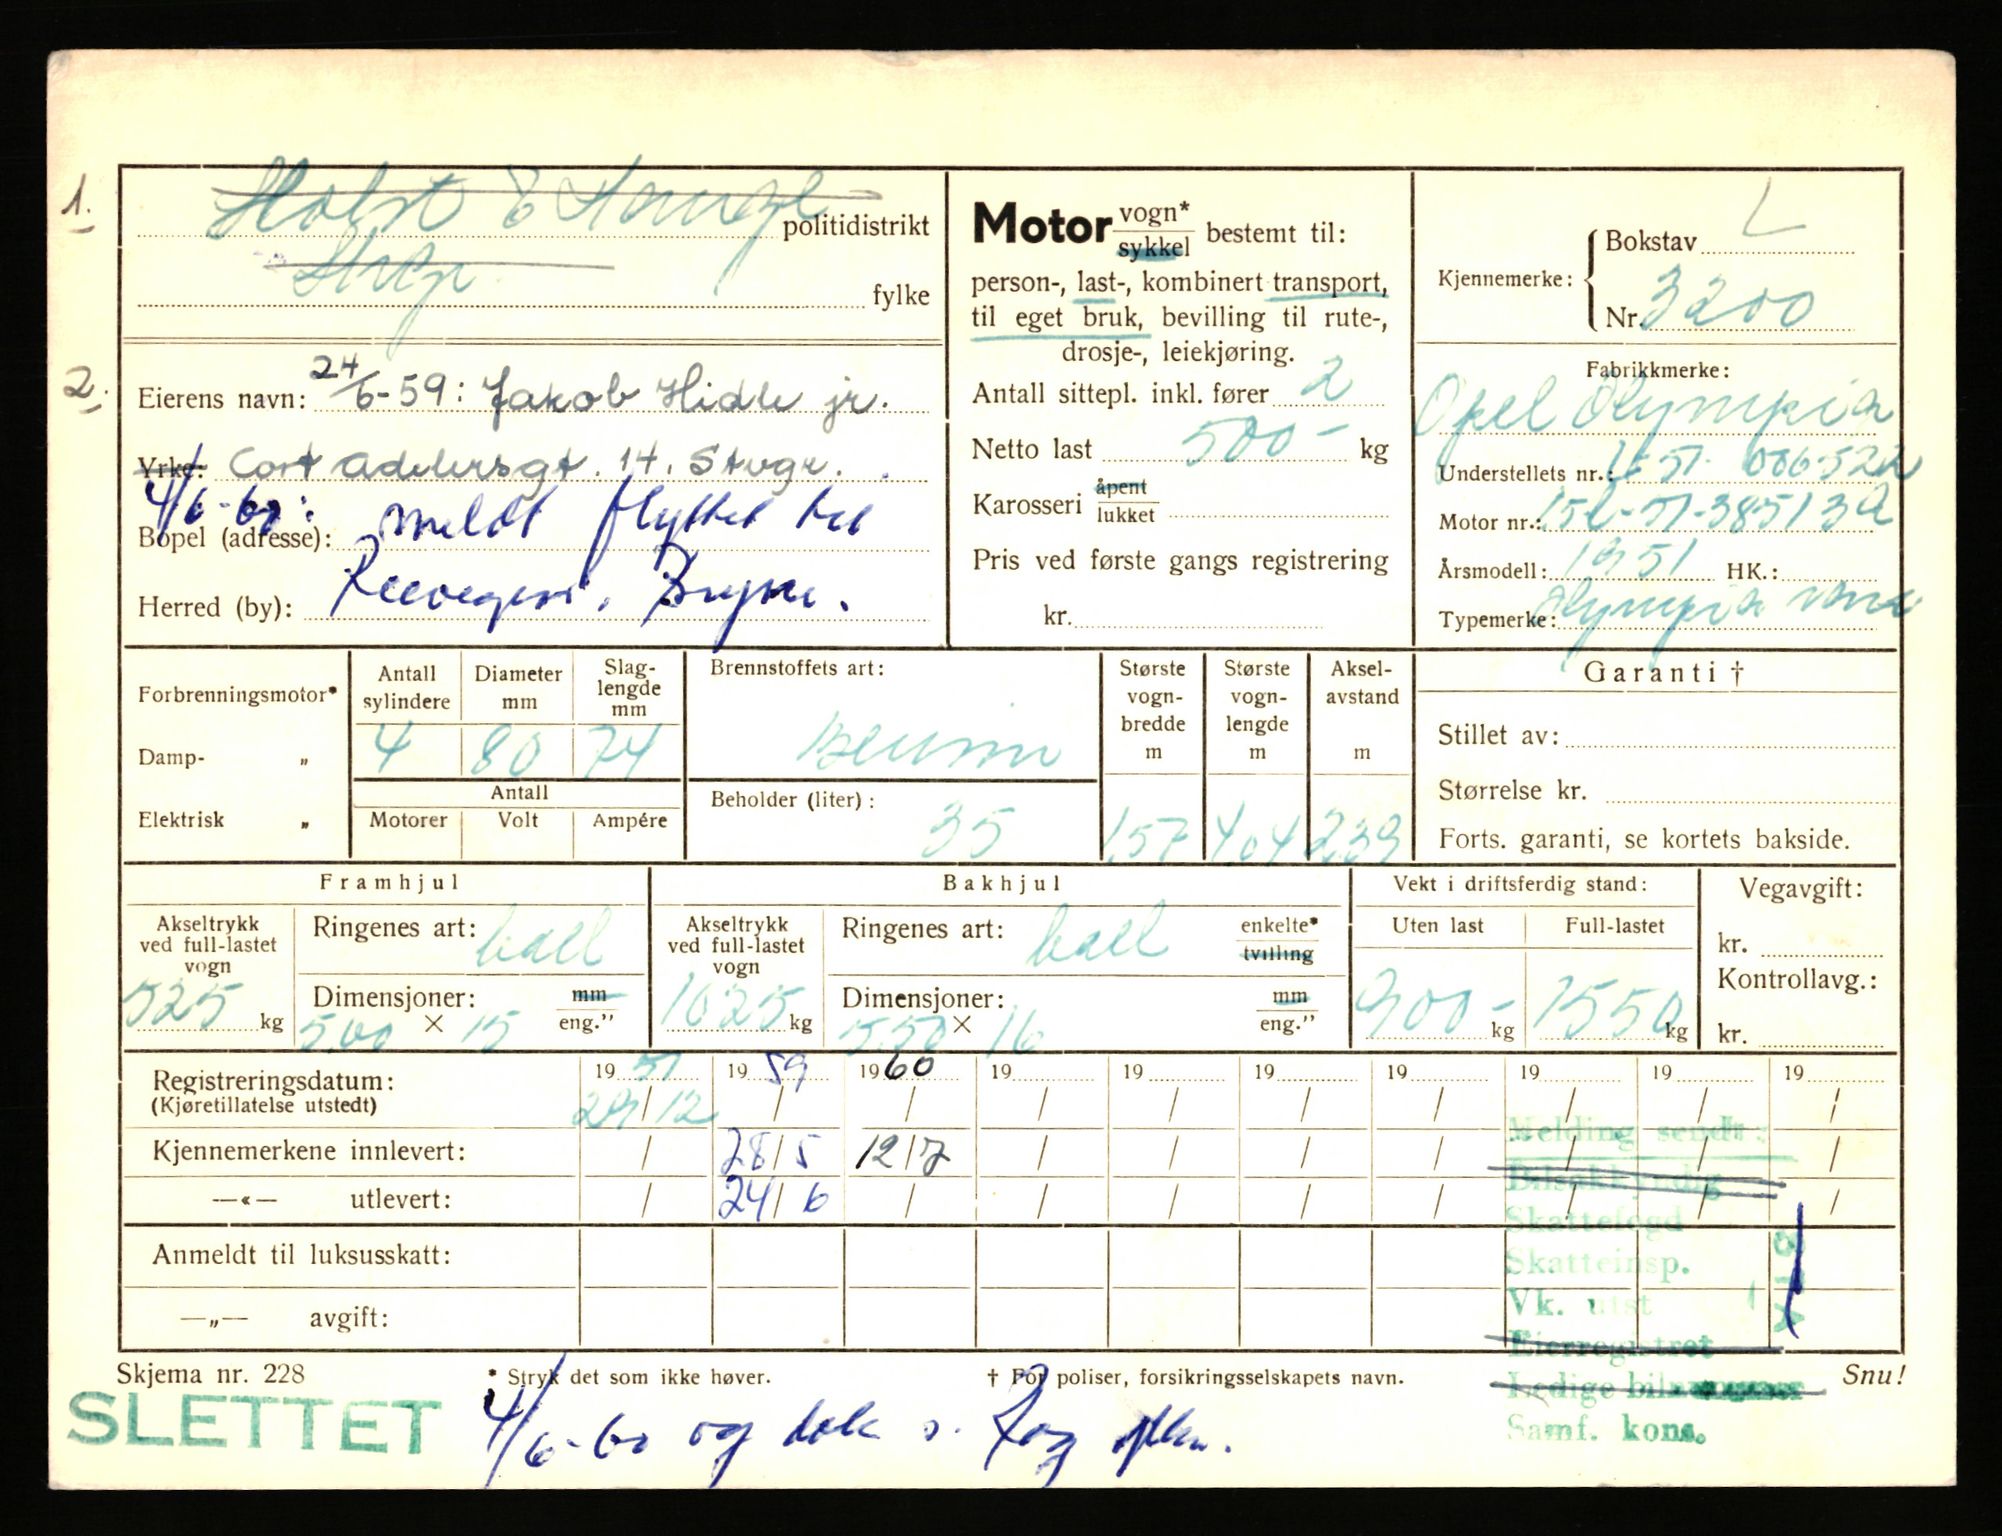 1.
Holst & Hauge politidistrikt
Stvgr. fylke
2.
Eierens navn: 24/6-59: Jakob Hidle jr.
Yrke: Cort Adelersgt. 14. Stvgr.
4/6-60: meldt flyttet til
Bopel (adresse):
Herred (by): Bryne.
Motor vogn* sykkel bestemt til:
person-, last-, kombinert transport,
til eget bruk, bevilling til rute-,
drosje-, leiekjøring.
Antall sittepl. inkl. fører 2
Netto last 500- kg
Karosseri åpent lukket
Pris ved første gangs registrering
kr.
Kjennemerke: Bokstav L
Nr. 3200
Fabrikkmerke:
Opel Olympia
Understellets nr.:
Motor nr.: 15L-51-38513A
Årsmodell: 1951 HK.:
Typemerke: Olympia
Forbrenningsmotor*
Damp- „
Elektrisk „
Antall sylindere 4
Diameter mm 80
Slaglengde mm 74
Antall
Motorer Volt Ampére
Brennstoffets art: Bensin
Beholder (liter): 35
Største vogn-bredde m 1,57
Største vogn-lengde m 4,04
Aksel-avstand m 2,39
Garanti †
Stillet av:
Størrelse kr.
Forts. garanti, se kortets bakside.
Framhjul
Akseltrykk ved full-lastet vogn 525 kg
Ringenes art: ball
Dimensjoner: 5,00 × 15 mm eng."
Bakhjul
Akseltrykk ved full-lastet vogn 1025 kg
Ringenes art: ball enkelte* tvilling
Dimensjoner: 5.50 × 16 mm eng."
Vekt i driftsferdig stand:
Uten last Full-lastet
900- kg 1550 kg
Vegavgift:
kr.
Kontrollavg.:
kr.
Registreringsdatum: 19 51 19 59 19 60 19 19 19 19 19 19 19
(Kjøretillatelse utstedt) 29/12 / / / / / / / / /
Kjennemerkene innlevert: / 28/5 12/7 / / / / / / /
—«— utlevert: / 24/6 / / / / / / / /
Anmeldt til luksusskatt:
—„— avgift:
Melding sendt:
Bilsakkyndig
Skattefogd
Skatteinsp.
Vk. utst
Eierregistret
Ledige
Samf. kons.
Skjema nr. 228 * Stryk det som ikke høver. † For poliser, forsikringsselskapets navn. Snu!
SLETTET 4/6-60 og dok s. Rog